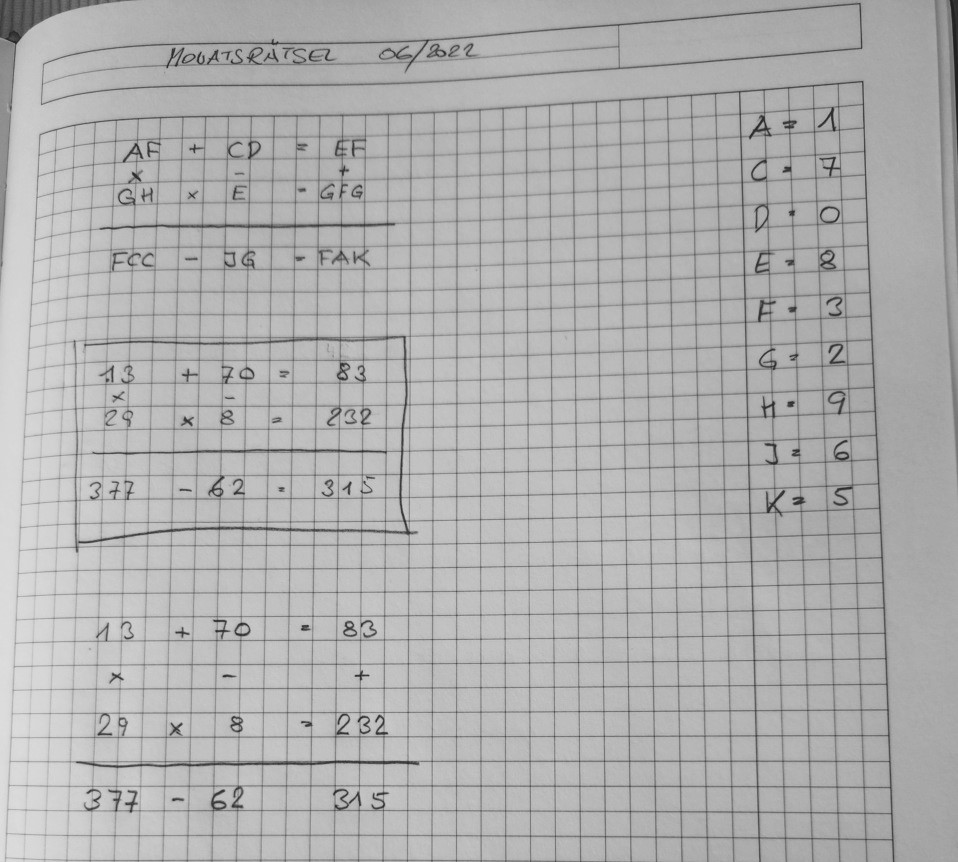 MONATSRÄTSEL 06/2022
AF + CD = EF
x - +
GH x E = GFG
FCC - JG = FAK
13 + 70 = 83
x -
29 x 8 = 232
377 - 62 = 315
13 + 70 = 83
x - +
29 x 8 = 232
377 - 62 315
A = 1
C = 7
D = 0
E = 8
F = 3
G = 2
H = 9
J = 6
K = 5